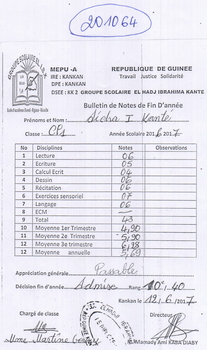 201064
MEPU -A REPUBLIQUE DE GUINEE
IRE : KANKAN Travail Justice Solidarité
DPE : KANKAN
DSEE : KK 2 GROUPE SCOLAIRE EL HADJ IBRAHIMA KANTE
Bulletin de Notes de Fin D'année
Prénoms et Nom : I Kanté
Classe : CP1 Année Scolaire 2016 2017
N° Disciplines Notes Observations
1 Lecture 06
2 Ecriture 05
3 Calcul Ecrit 04
4 Dessin 06
5 Récitation 06
6 Exercices sensoriel 07
7 Langage 06
8 ECM —
9 Total 43
10 Moyenne 1er Trimestre 4,90
11 Moyenne 2e Trimestre 5,90
12 Moyenne 3e trimestre 6,18
Moyenne annuelle 5,69
Appréciation générale : Passable
Décision fin d'année : Admise Rang 10è/40
Kankan le 12/6/2017
Chargé de classe Directeur
Mme Martine M. Mamady Ami KABA DIABY